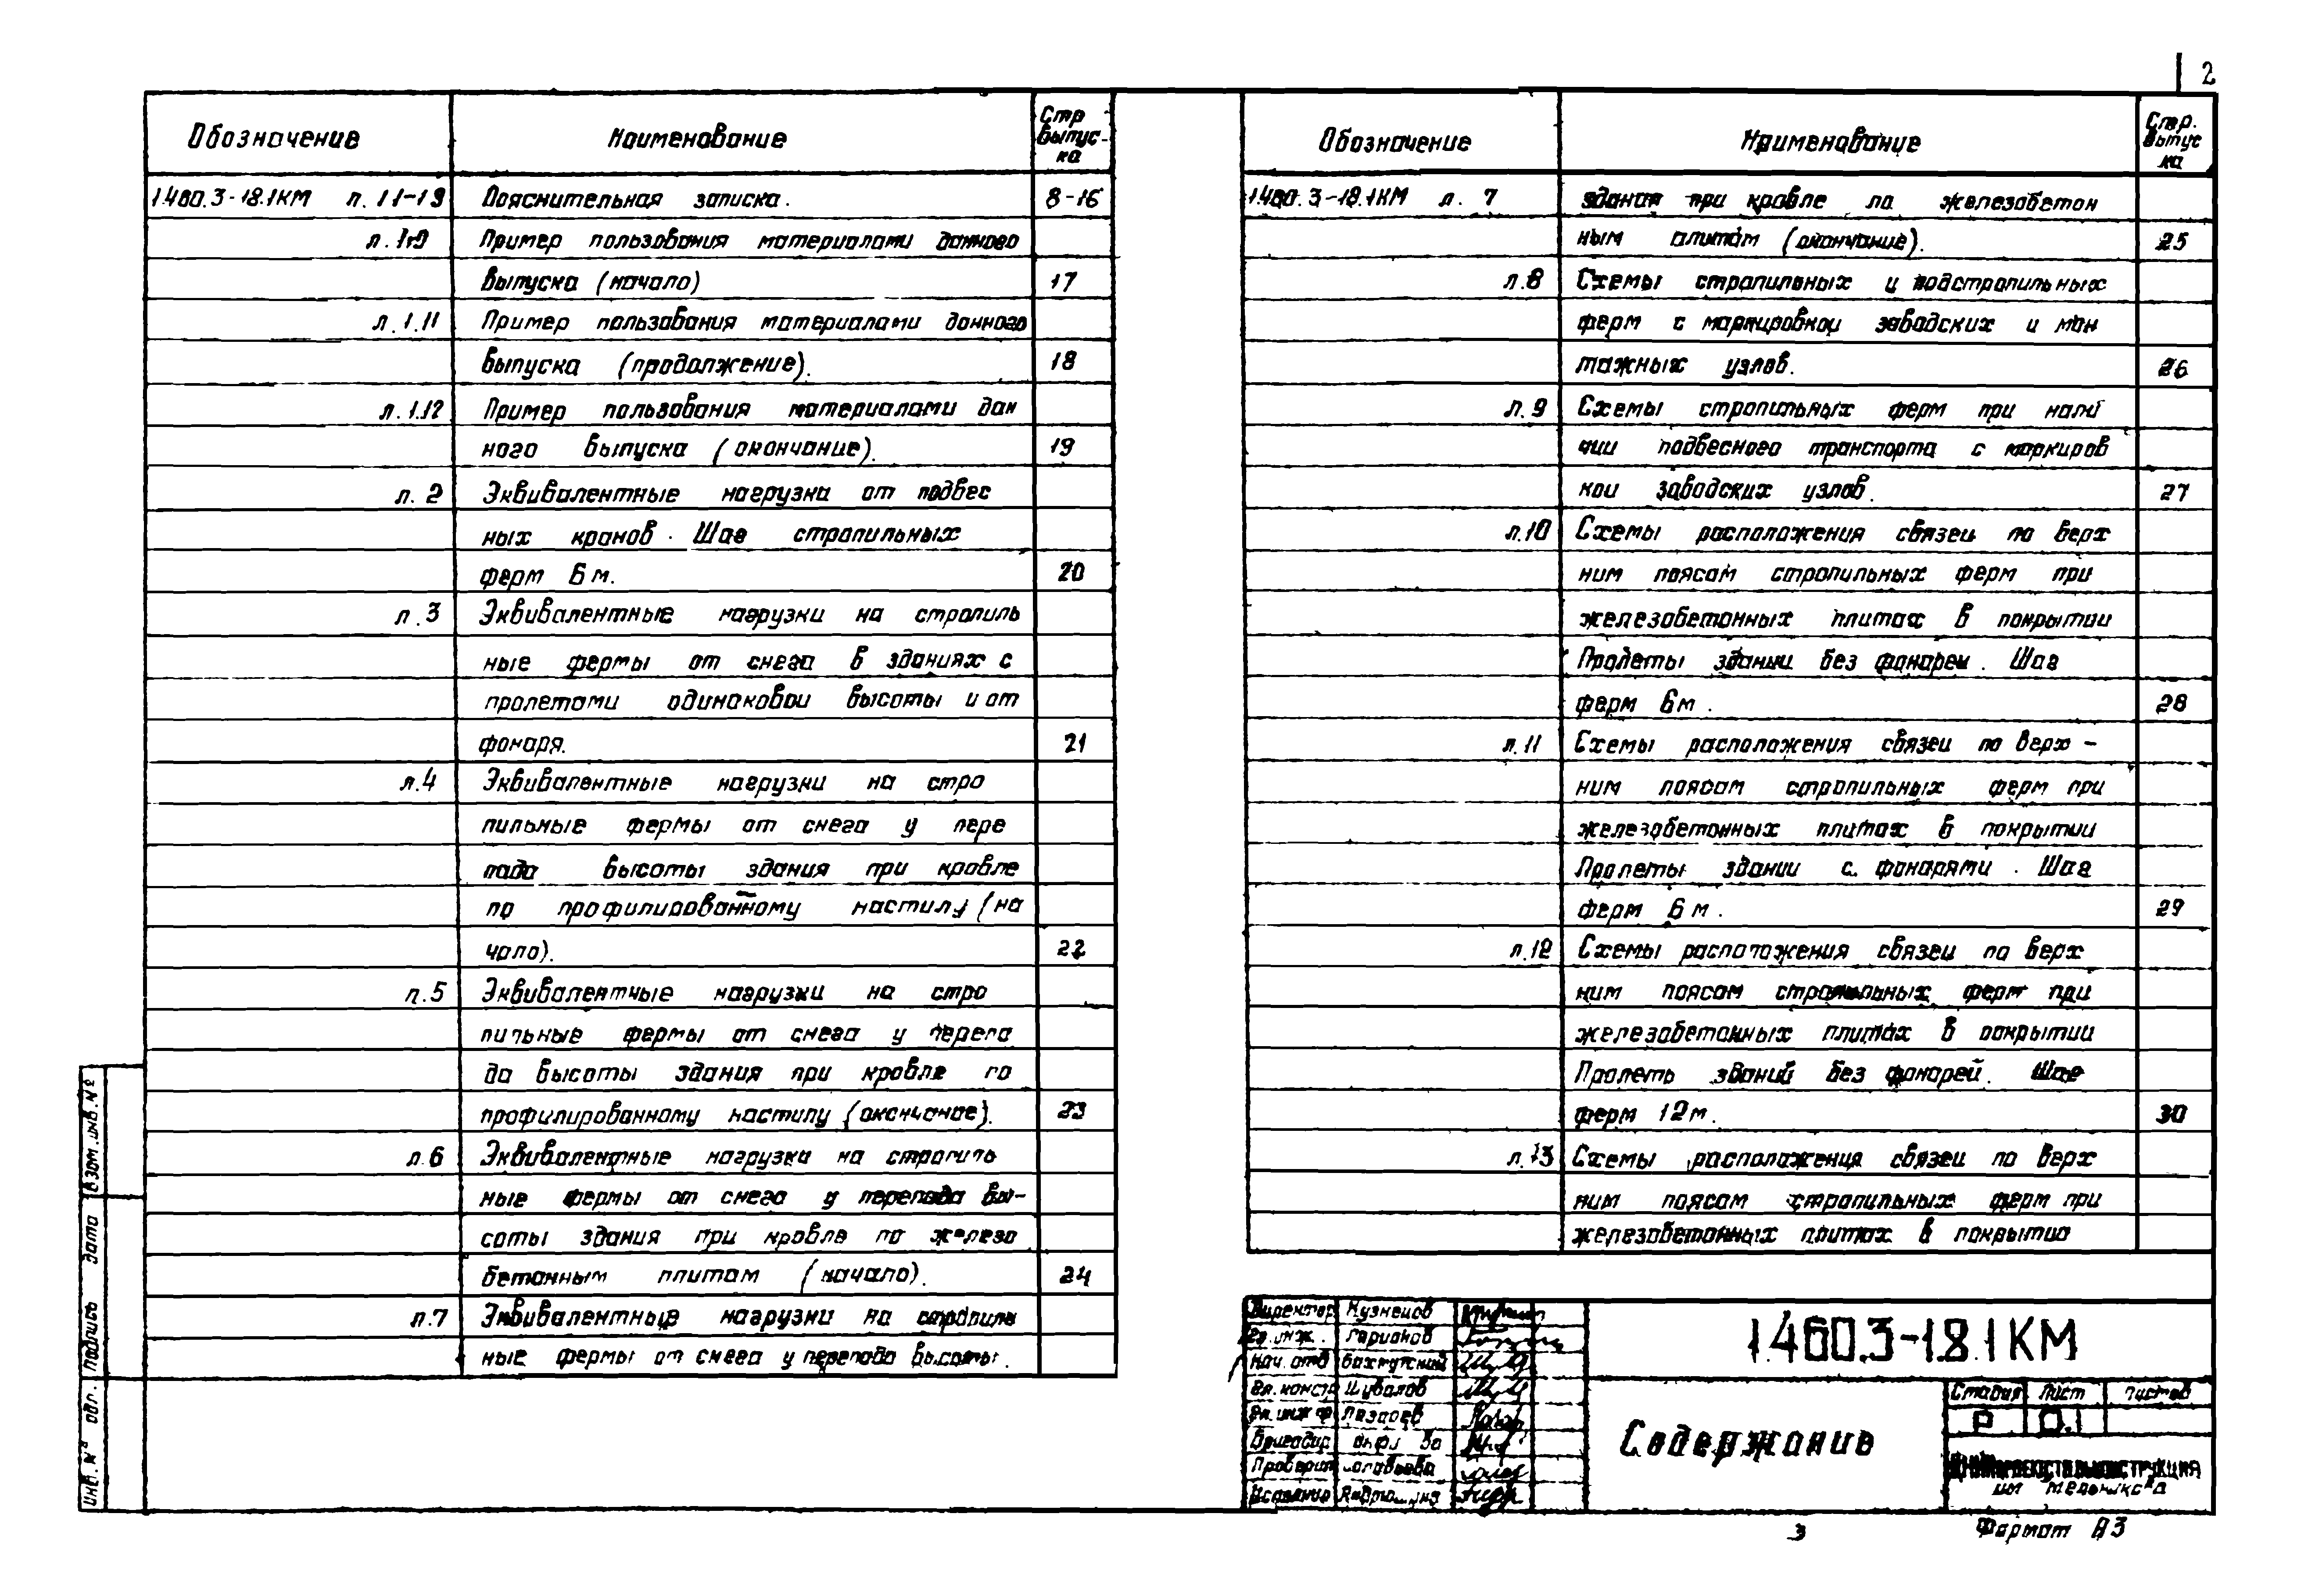 2
Обозначение Наименование Стр выпус-ка
1.460.3-18.1КМ л. 1.1-1.9 Пояснительная записка. 8-16
л. 1.10 Пример пользования материалами данного
выпуска (начало) 17
л. 1.11 Пример пользования материалами данного
выпуска (продолжение). 18
л. 1.12 Пример пользования материалами дан
ного выпуска (окончание). 19
л. 2 Эквивалентные нагрузки от подвес
ных кранов. Шаг стропильных
ферм 6 м. 20
л. 3 Эквивалентные нагрузки на стропиль
ные фермы от снега в зданиях с
пролетами одинаковой высоты и от
фонаря. 21
л.4 Эквивалентные нагрузки на стро
пильные фермы от снега у пере
пада высоты здания при кровле
по профилированному настилу (на
чало). 22
л.5 Эквивалентные нагрузки на стро
пильные фермы от снега у перепа
да высоты здания при кровле по
профилированному настилу (окончание). 23
л.6 Эквивалентные нагрузки на стропиль
ные фермы от снега у перепада вы-
соты здания при кровле по железо
бетонным плитам (начало). 24
л.7 Эквивалентные нагрузки на стропиль
ные фермы от снега у перепада высоты.
Обозначение Наименование Стр. выпус ка
1.460.3-18.1КМ л. 7 здания при кровле по железобетон
ным плитам (окончание). 25
л.8 Схемы стропильных и подстропильных
ферм с маркировкой заводских и мон
тажных узлов. 26
л.9 Схемы стропильных ферм при нали
чии подвесного транспорта с маркиров
кой заводских узлов. 27
л.10 Схемы расположения связей по верх
ним поясам стропильных ферм при
железобетонных плитах в покрытии
Пролеты зданий без фонарей. Шаг
ферм 6м. 28
л.11 Схемы расположения связей по верх-
ним поясам стропильных ферм при
железобетонных плитах в покрытии
Пролеты зданий с фонарями. Шаг
ферм 6 м. 29
л.12 Схемы расположения связей по верх
ним поясам стропильных ферм при
железобетонных плитах в покрытии
Пролеты зданий без фонарей. Шаг
ферм 12 м. 30
л.13 Схемы расположения связей по верх
ним поясам стропильных ферм при
железобетонных плитах в покрытии
Директор Кузнецов
Гл.инж. Ларионов
Нач. отд Бахмутский
Гл. констр Шувалов
Гл. инж пр Лазарев
Бригадир
Проверил Соловьева
Исполнил
1.460.3-18.1КМ
Содержание
Стадия Лист Листов
Р 0.1
ЦНИИПРОЕКТСТАЛЬКОНСТРУКЦИЯ
им Мельникова
Инв. № подл. Подпись дата Взам. инв. №
3 Формат А3